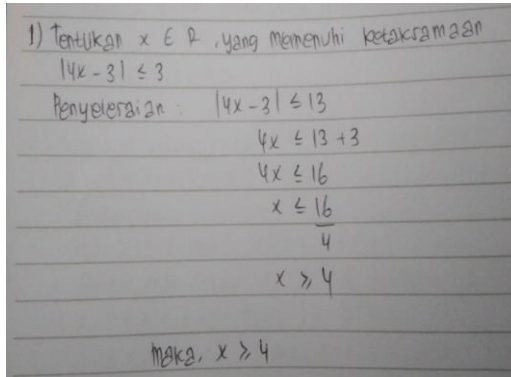 1) Tentukan x ∈ R, yang memenuhi ketaksamaan
|4x - 3| ≤ 3
Penyelesaian: |4x - 3| ≤ 13
4x ≤ 13 + 3
4x ≤ 16
x ≤ 16/4
x ≥ 4
maka, x ≥ 4